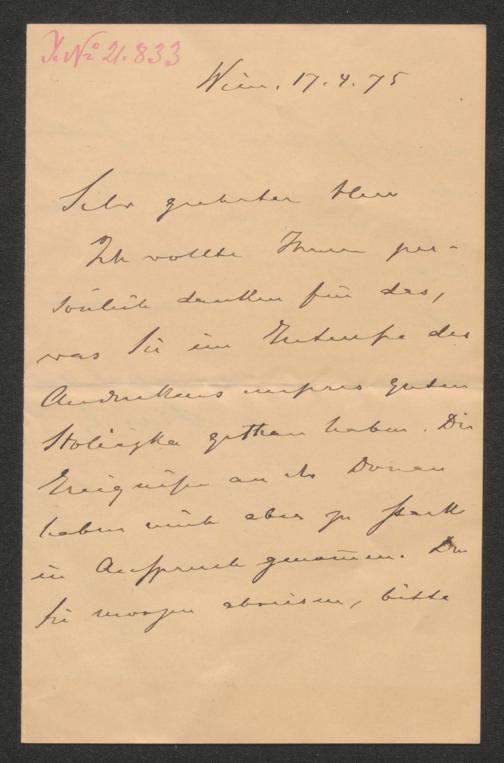 J. No 21.833
Wien. 17.4.75
Sehr geehrter Herr
Ich wollte Ihnen per-
sönlich danken für das,
was Sie im Interesse des
Andenkens unseres guten
Stolitzka gethan haben. Die
Ereignisse an der Donau
haben mich aber zu stark
in Anspruch genom̄en. Da
Sie morgen abreisen, bitte